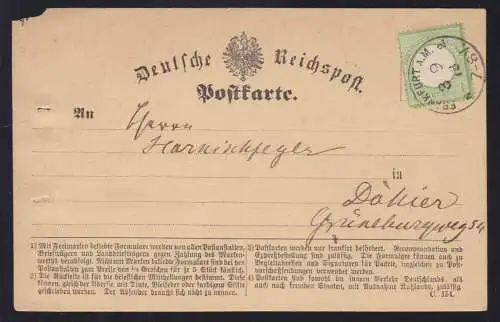 Deutsche Reichspost.
Postkarte.
FRANKFURT A.M.
9
3
An
Herrn
Harnischfeger
in
Grüneburgweg 54
1) Mit Freimarken beklebte Formulare werden von allen Postanstalten,
Briefträgern und Landbriefträgern gegen Zahlung des Marken-
werthes verabfolgt. Nichtmit Marken beklebte Formulare sind bei den
Postanstalten zum Preise von ¼ Groschen für je 5 Stück käuflich.
2) Die Rückseite ist für die brieflichen Mittheilungen bestimmt. Diese
können, gleich der Adresse, mit Tinte, Bleifeder oder farbigem Stifte
geschrieben werden. Der Absender braucht sich nicht zu nennen.
3) Postkarten werden nur frankirt befördert. Recommandation und
Expreßbestellung sind zulässig. Die Formulare können auch zu
Begleitadressen und Signaturen für Packete, imgleichen zu Post-
vorschußsendungen verwendet werden.
4) Postkarten sind sowohl im innern Verkehr Deutschlands, als
auch nach fremden Staaten, mit Ausnahme Rußlands, zulässig.
C. 154.